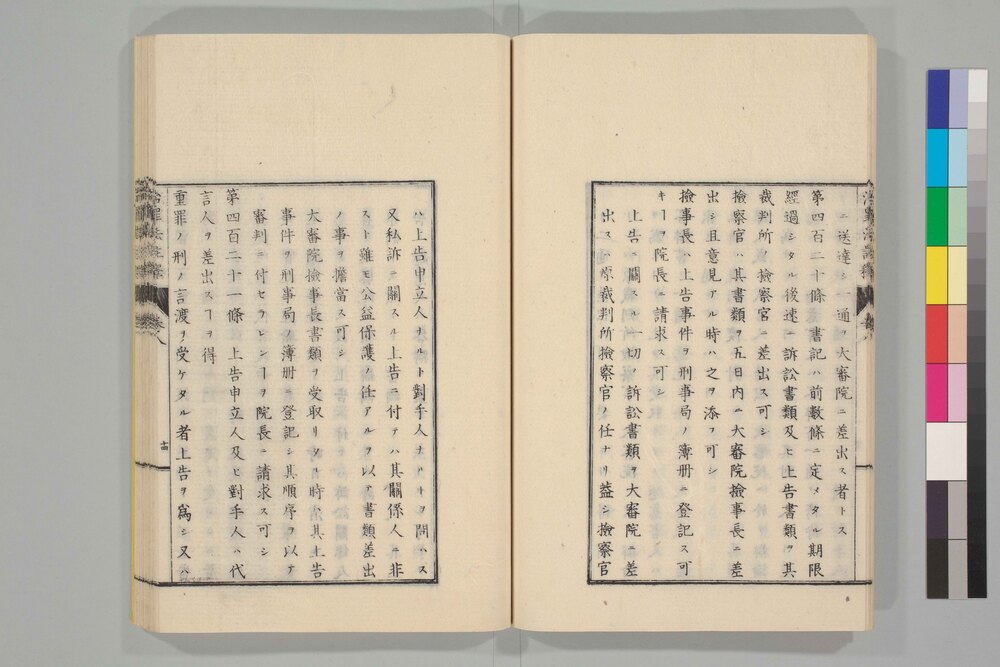 ニ送達シ一通ヲ大審院ニ差出ス者トス
第四百二十條 書記ハ前數條ニ定メタル期限
經過シタル後速ニ訴訟書類及ヒ上告書類ヲ其
裁判所ノ檢察官ニ差出ス可シ
檢察官ハ其書類ヲ五日内ニ大審院檢事長ニ差
出シ且意見アル時ハ之ヲ添フ可シ
檢事長ハ上告事件ヲ刑事局ノ簿册ニ登記ス可
キヿヲ院長ニ請求ス可シ
上告ニ關スル一切ノ訴訟書類ヲ大審院ニ差
出スハ原裁判所檢察官ノ任ナリ蓋シ檢察官
ハ上告申立人ナルト對手人ナルトヲ問ハス
又私訴ニ關スル上告ニ付テハ其關係人ニ非
スト雖モ公益保護ノ任アルヲ以テ書類差出
ノ事ヲ擔當ス可シ
大審院檢事長書類ヲ受取リタル時ハ其上告
事件ヲ刑事局ノ簿册ニ登記シ其順序ヲ以テ
審判ニ付セラレンヿヲ院長ニ請求ス可シ
第四百二十一條 上告申立人及ヒ對手人ハ代
言人ヲ差出スヿヲ得
重罪ノ刑ノ言渡ヲ受ケタル者上告ヲ爲シ又ハ
治罪法註釋 卷八
十四